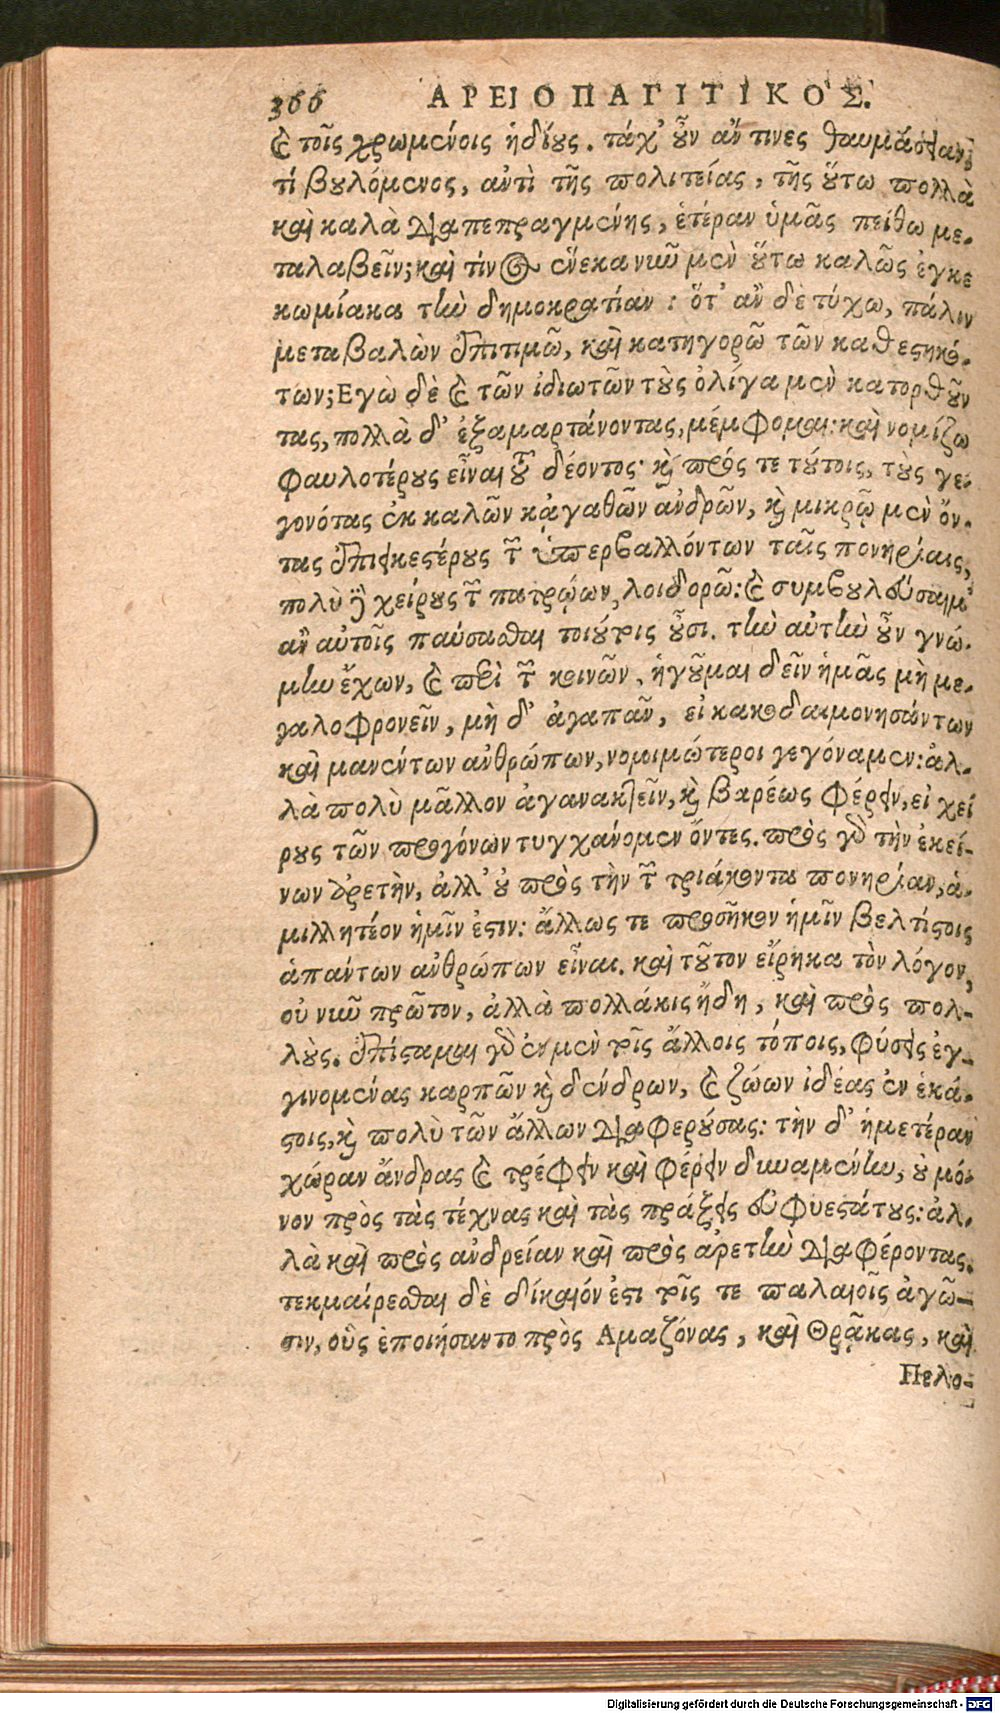 366 ΑΡΕΙΟΠΑΓΙΤΙΚΟΣ.
καὶ τοῖς χρωμένοις ἡδίους. τάχ' οὖν ἄν τινες θαυμάσειαν,
τί βουλόμενος, ἀντὶ τῆς πολιτείας, τῆς οὕτω πολλὰ
καὶ καλὰ διαπεπραγμένης, ἑτέραν ὑμᾶς πείθω με-
ταλαβεῖν; καὶ τίνος ἕνεκα νῦν μὲν οὕτω καλῶς ἐγκε
κωμίακα τὴν δημοκρατίαν: ὅτ' ἂν δὲ τύχω, πάλιν
μεταβαλὼν ἐπιτιμῶ, καὶ κατηγορῶ τῶν καθεστηκό-
των; Εγὼ δὲ καὶ τῶν ἰδιωτῶν τοὺς ὀλίγα μὲν κατορθοῦν
τας, πολλὰ δ' ἐξαμαρτάνοντας, μέμφομαι: καὶ νομίζω
φαυλοτέρους εἶναι τοῦ δέοντος· καὶ πρός τε τούτοις, τοὺς γε-
γονότας ἐκ καλῶν κἀγαθῶν ἀνδρῶν, καὶ μικρῷ μὲν ὄν-
τας ἐπιεικεστέρους τῶν ὑπερβαλλόντων ταῖς πονηρίαις,
πολὺ δὲ χείρους τῶν πατρῴων, λοιδορῶ: καὶ συμβουλεύσαιμ'
ἂν αὐτοῖς παύσασθαι τοιούτοις οὖσι. τὴν αὐτὴν οὖν γνώ-
μην ἔχων, καὶ περὶ τῶν κοινῶν, ἡγοῦμαι δεῖν ἡμᾶς μὴ με-
γαλοφρονεῖν, μὴ δ' ἀγαπᾶν, εἰ κακοδαιμονησάντων
καὶ μανέντων ἀνθρώπων, νομιμώτεροι γεγόναμεν: ἀλ-
λὰ πολὺ μᾶλλον ἀγανακτεῖν, καὶ βαρέως φέρειν, εἰ χεί
ρους τῶν προγόνων τυγχάνομεν ὄντες. πρὸς γὰρ τὴν ἐκεί-
νων ἀρετὴν, ἀλλ' οὐ πρὸς τὴν τῶν τριάκοντα πονηρίαν, ἁ-
μιλλητέον ἡμῖν ἐστιν: ἄλλως τε προσῆκον ἡμῖν βελτίστοις
ἁπάντων ἀνθρώπων εἶναι. καὶ τοῦτον εἴρηκα τὸν λόγον,
οὐ νῦν πρῶτον, ἀλλὰ πολλάκις ἤδη, καὶ πρὸς πολ-
λούς. Ἐπίσταμαι γὰρ ἐν μὲν τοῖς ἄλλοις τόποις, φύσεις ἐγ-
γινομένας καρπῶν καὶ δένδρων, καὶ ζώων ἰδέας ἐν ἑκά-
στοις, καὶ πολὺ τῶν ἄλλων διαφερούσας: τὴν δ' ἡμετέραν
χώραν ἄνδρας καὶ τρέφειν καὶ φέρειν δυναμένην, οὐ μό-
νον πρὸς τὰς τέχνας καὶ τὰς πράξεις εὐφυεστάτους: ἀλ-
λὰ καὶ πρὸς ἀνδρείαν καὶ πρὸς ἀρετὴν διαφέροντας.
τεκμαίρεσθαι δὲ δίκαιόν ἐστι τοῖς τε παλαιοῖς ἀγῶ-
σιν, οὓς ἐποιήσαντο πρὸς Αμαζόνας, καὶ Θρᾷκας, καὶ
Πελο-
Digitalisierung gefördert durch die Deutsche Forschungsgemeinschaft - DFG